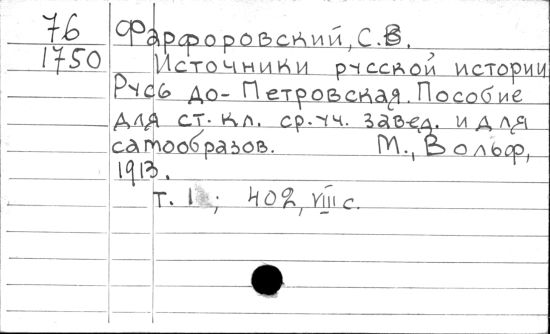 76 Фарфоровский, С.В.
1750 Источники русской истории
Русь до-Петровская. Пособие
для ст. кл. ср. уч. завед. и для
самообразов. М., Вольф,
1913.
т. I; 402, VIII с.